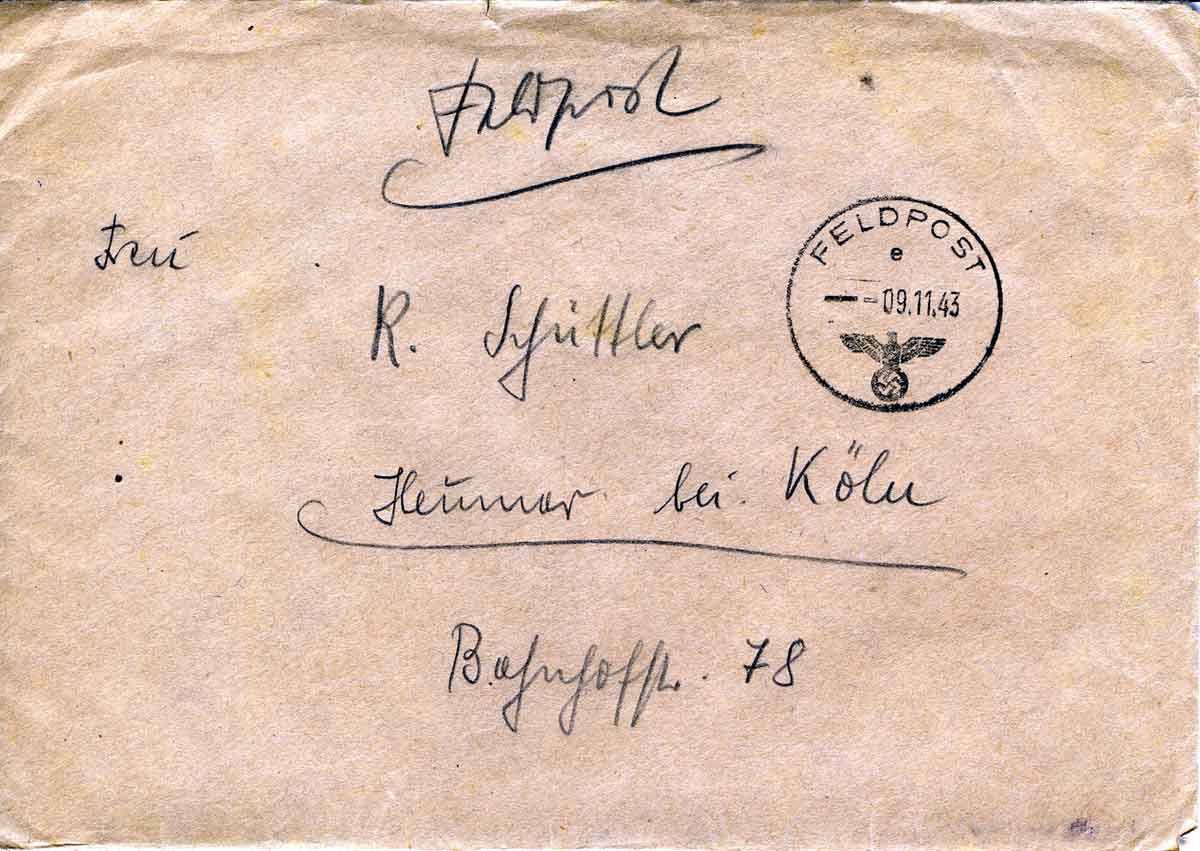 Feldpost
Frau
FELDPOST
e
-09.11.43
R. Schüttler
Heumar bei Köln
Bahnhofstr. 78